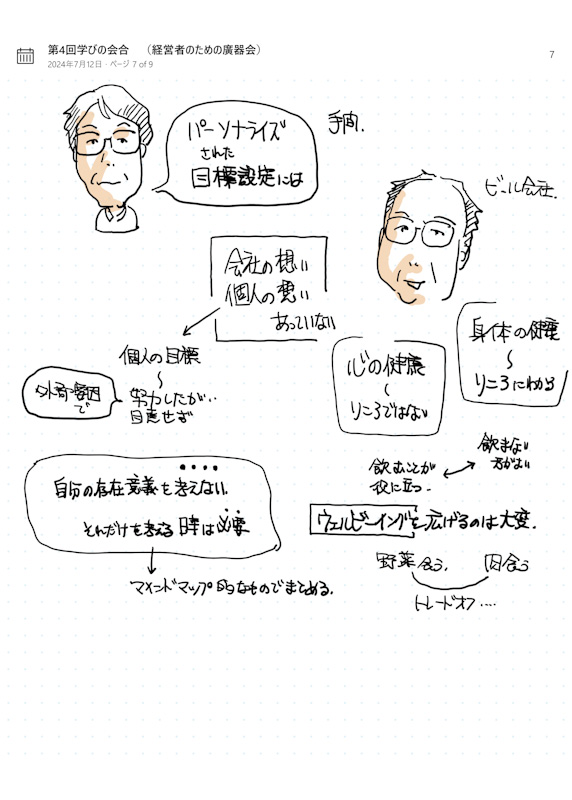 第4回学びの会合 （経営者のための廣器会）
2024年7月12日・ページ 7 of 9
7
パーソナライズ
された
目標設定には
手間.
ビール会社.
会社の想い
個人の想い
あっていない
個人の目標
〜
努力したが..
達せず
外部要因
で
身体の健康
〜
りころにわかる
心の健康
〜
りころではない
飲むことが
役に立つ.
飲まない
方がよい
自分の存在意義を考えない.
それだけを考える時は必要
マインドマップ的なものでまとめる.
ウェルビーイングを広げるのは大変.
野菜会う.
肉会う
トレードオフ....